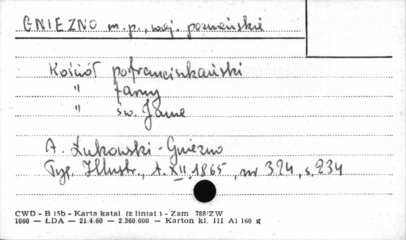 GNIEZNO m.p., woj. poznańskie
Kościół pofranciszkański
" farny
" św. Jana
A. Łukowski - Gniezno
Tyg. Illustr., t. XII, 1865, nr 324, s. 234
CWD - B 15b - Karta katal (z liniat) - Zam 788/ZW
1060 — ŁDA — 21.4.60 — 2.360.000 — Karton kl. III A1 160 g